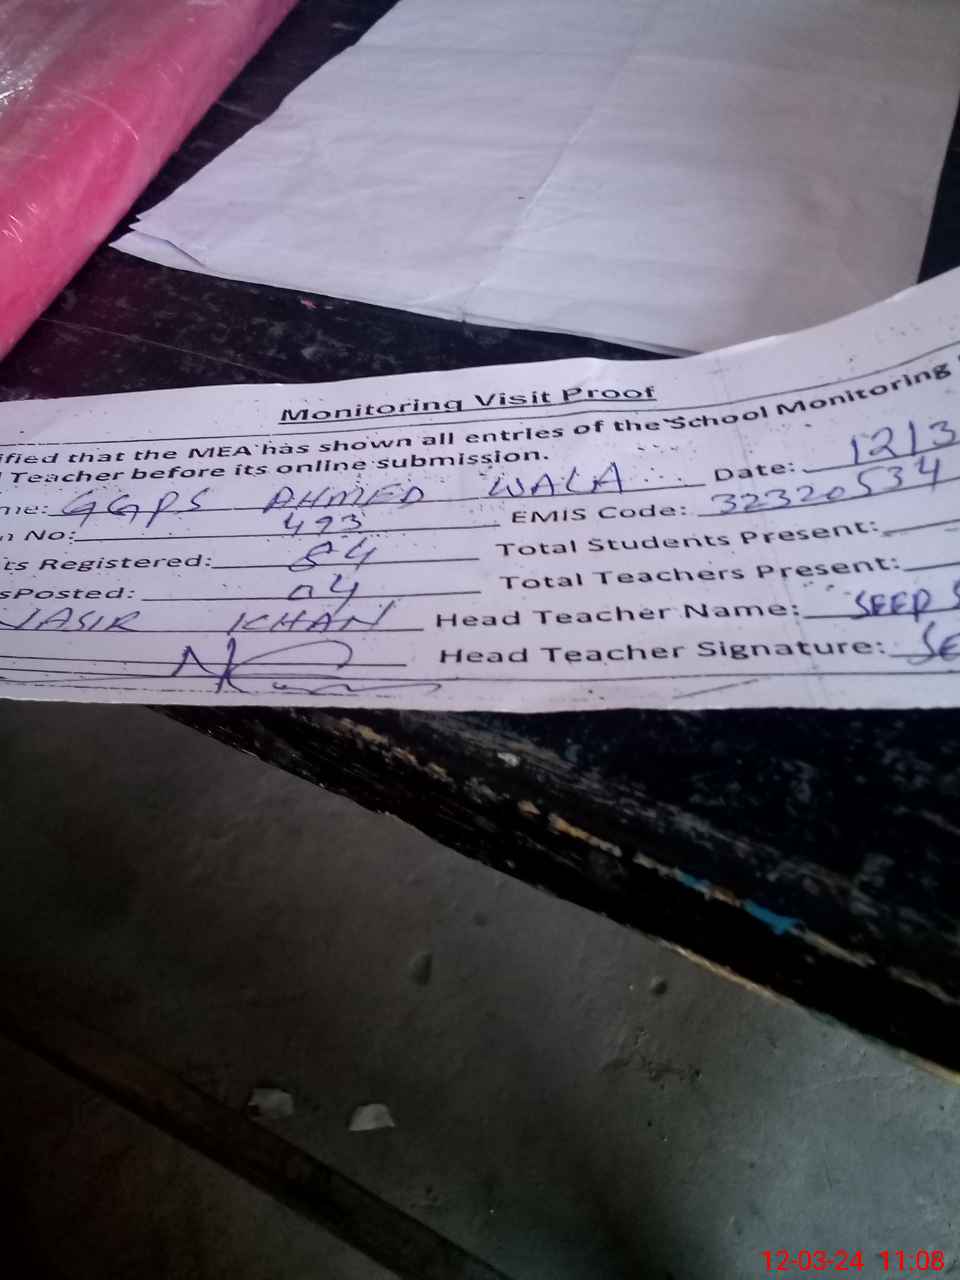 Monitoring Visit Proof
ified that the MEA has shown all entries of the School Monitoring
Teacher before its online submission.
me: GGPS AHMED WALA Date: 12/3
n No: 493 EMIS Code: 32320534
ts Registered: 64 Total Students Present:
sPosted: 04 Total Teachers Present:
NASIR KHAN Head Teacher Name:
Head Teacher Signature:
12-03-24 11:08